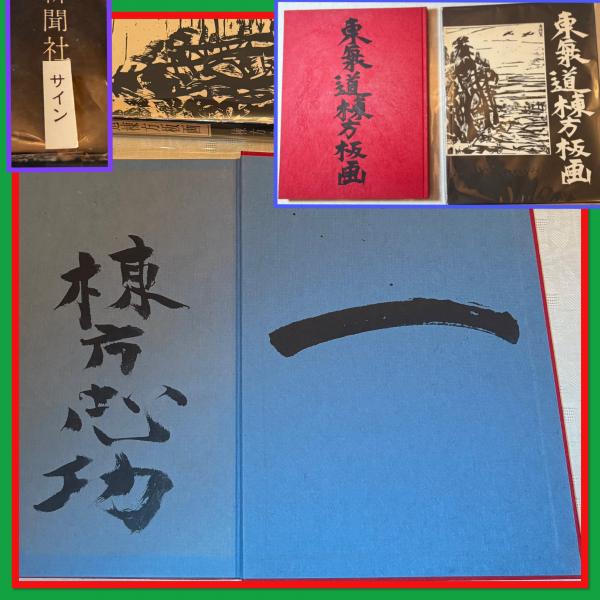 聞社
サイン
東海道棟方板画
東海道棟方板画
一
棟方志功